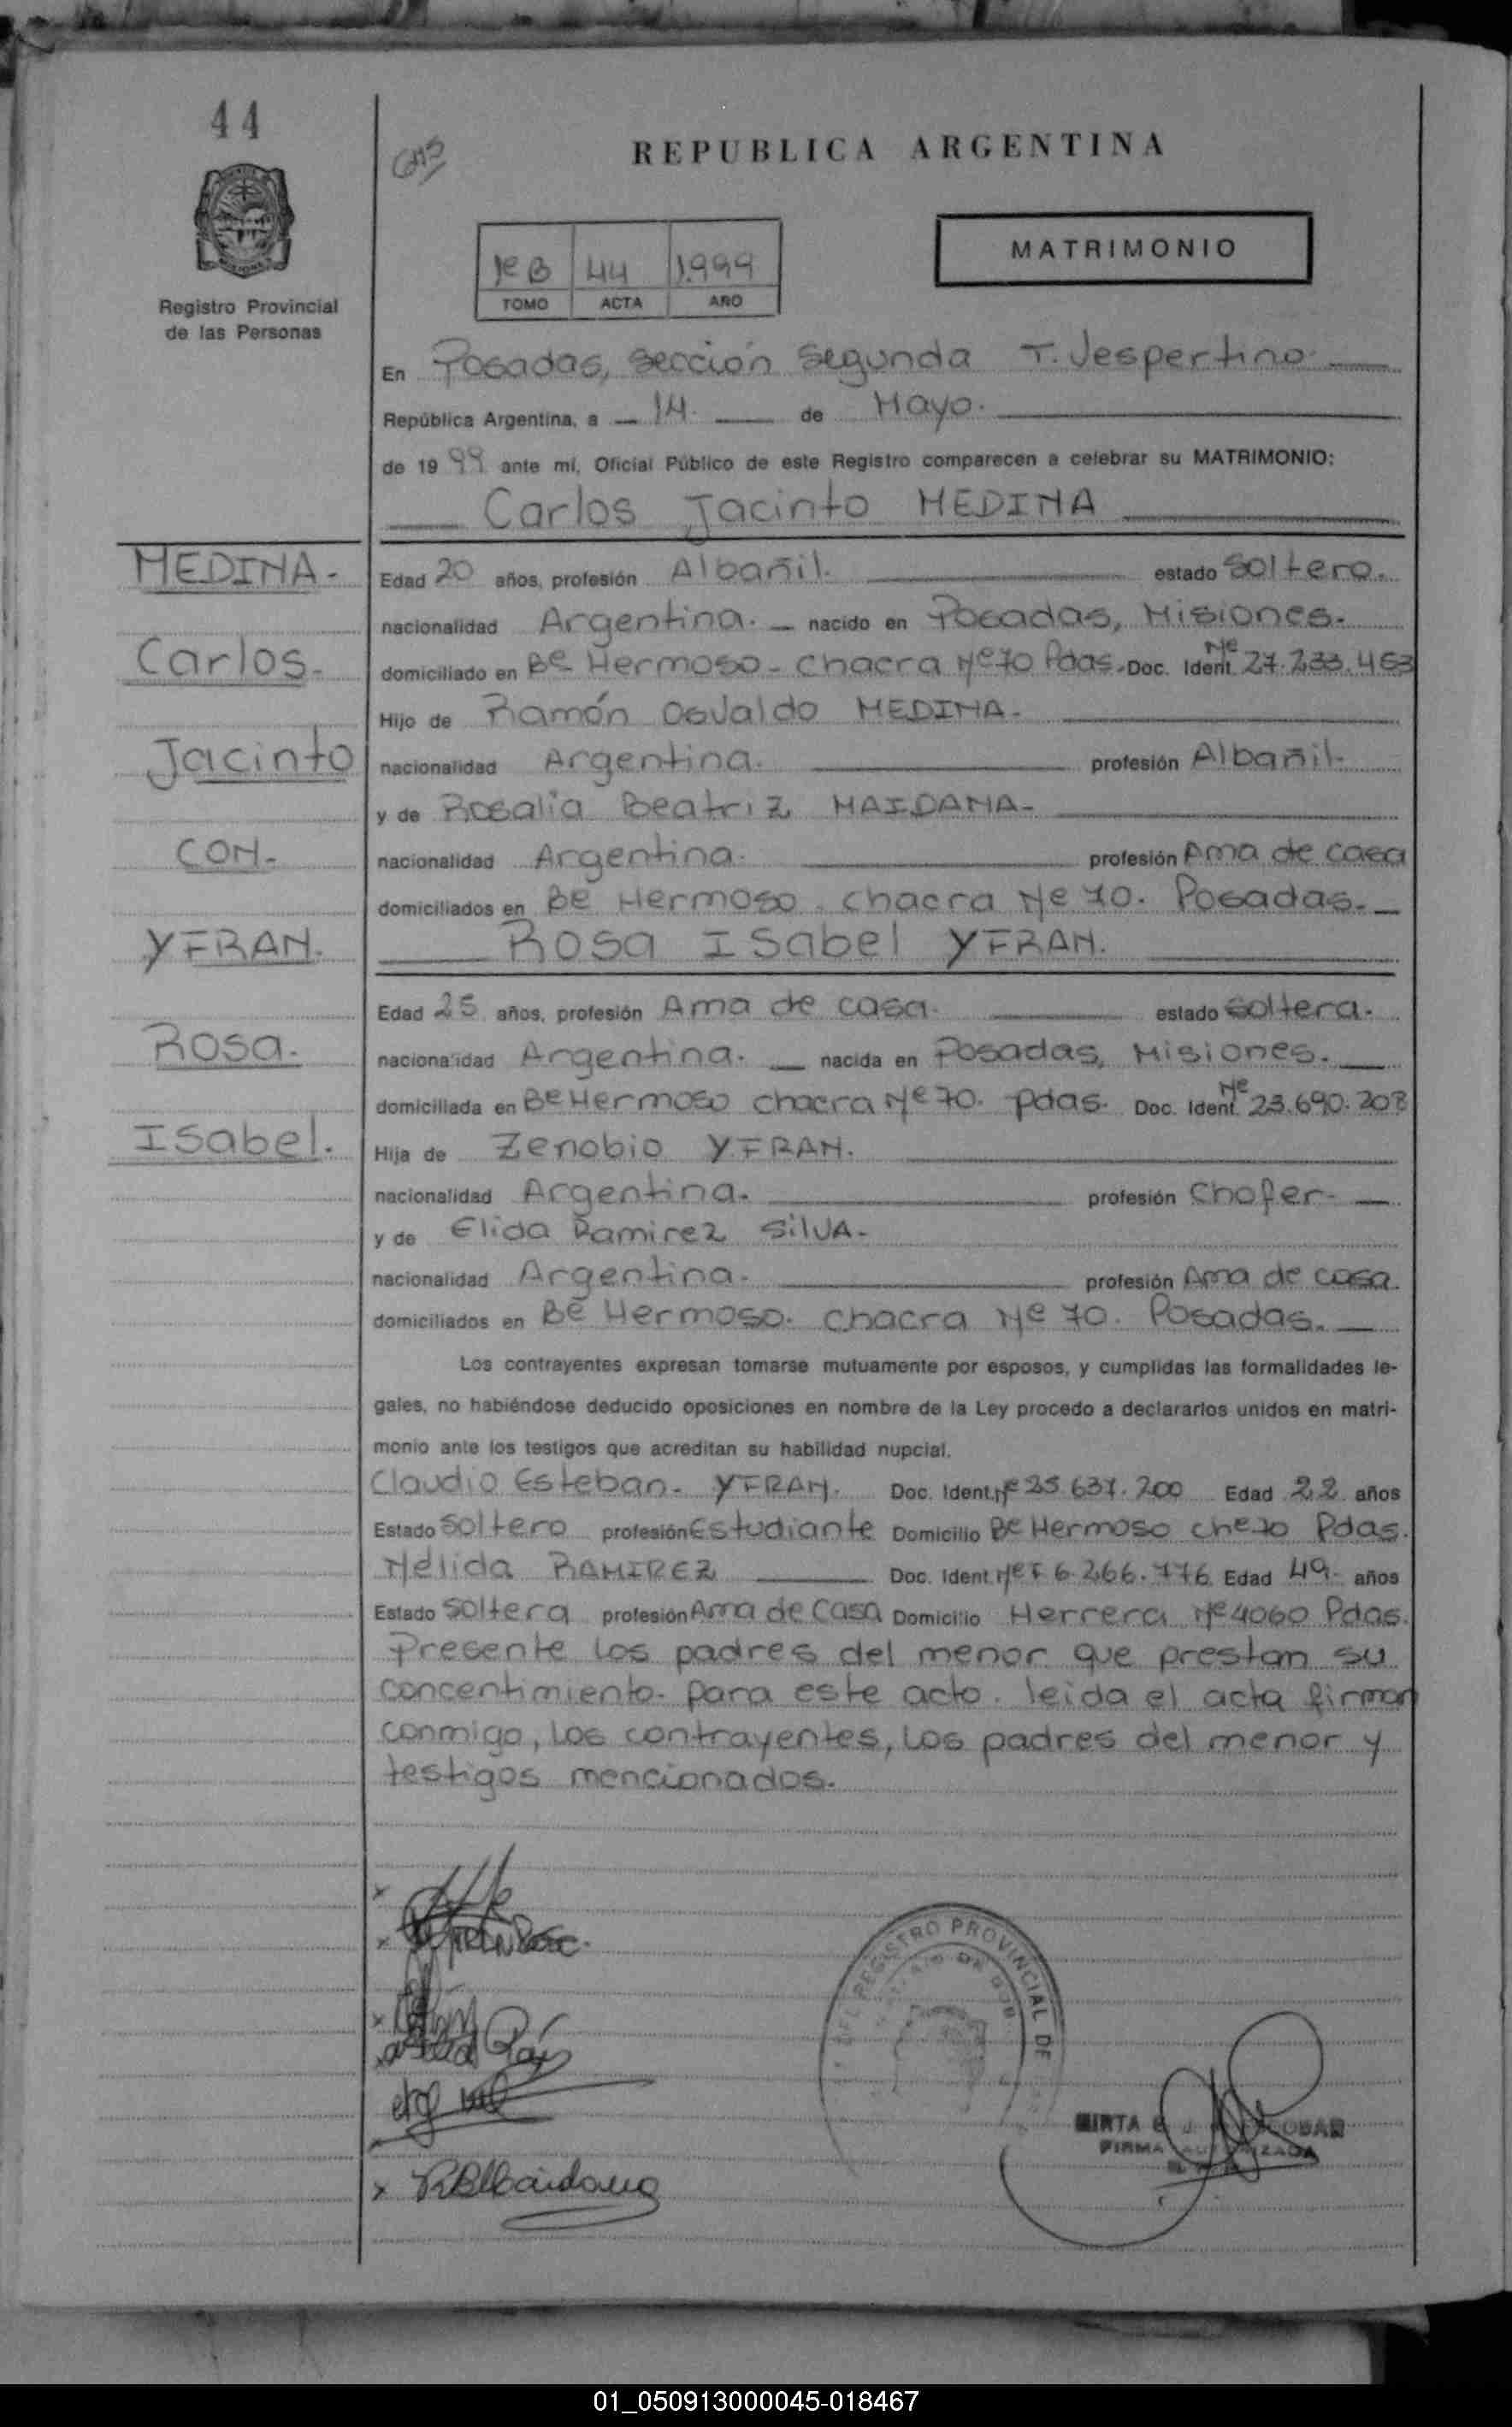 44
REPUBLICA ARGENTINA
1º B 44 1.999
TOMO ACTA AÑO
MATRIMONIO
Registro Provincial
de las Personas
En Posadas, sección segunda T. Vespertino.
República Argentina, a 14. de Mayo.
de 19 99 ante mí, Oficial Público de este Registro comparecen a celebrar su MATRIMONIO:
Carlos Jacinto MEDINA
MEDINA.-
Carlos.-
Jacinto
CON.-
YFRAN.
Rosa.
Isabel.
Edad 20 años, profesión Albañil. estado soltero.
nacionalidad Argentina. nacido en Posadas, Misiones.
domiciliado en Bº Hermoso - chacra Nº 70 Pdas. Doc. Ident. Nº 27.233.453
Hijo de Ramón Osvaldo MEDINA.
nacionalidad Argentina. profesión Albañil.
y de Rosalia Beatriz MAIDANA.
nacionalidad Argentina. profesión Ama de casa
domiciliados en Bº Hermoso. chacra Nº 70. Posadas.
Rosa Isabel YFRAN.
Edad 25 años, profesión Ama de casa. estado soltera.
nacionalidad Argentina. nacida en Posadas, Misiones.
domiciliada en Bº Hermoso chacra Nº 70. Pdas. Doc. Ident. Nº 23.690.208
Hija de Zenobio YFRAN.
nacionalidad Argentina. profesión Chofer
y de Elida Ramirez SilVA.
nacionalidad Argentina. profesión Ama de casa.
domiciliados en Bº Hermoso. chacra Nº 70. Posadas.
Los contrayentes expresan tomarse mutuamente por esposos, y cumplidas las formalidades le-
gales, no habiéndose deducido oposiciones en nombre de la Ley procedo a declararlos unidos en matri-
monio ante los testigos que acreditan su habilidad nupcial.
Claudio Esteban. YFRAN. Doc. Ident. Nº 25.637.200 Edad 22 años
Estado soltero profesión Estudiante Domicilio Bº Hermoso chº 70 Pdas.
Nélida RAMIREZ Doc. Ident. Nº F 6.266.776 Edad 49 años
Estado soltera profesión Ama de Casa Domicilio Herrera Nº 4060 Pdas.
Presente los padres del menor que prestan su
concentimiento para este acto. leida el acta firman
conmigo, los contrayentes, los padres del menor y
testigos mencionados.
DEL REGISTRO PROVINCIAL DE
MIRTA
FIRMA AUTORIZADA
01_050913000045-018467